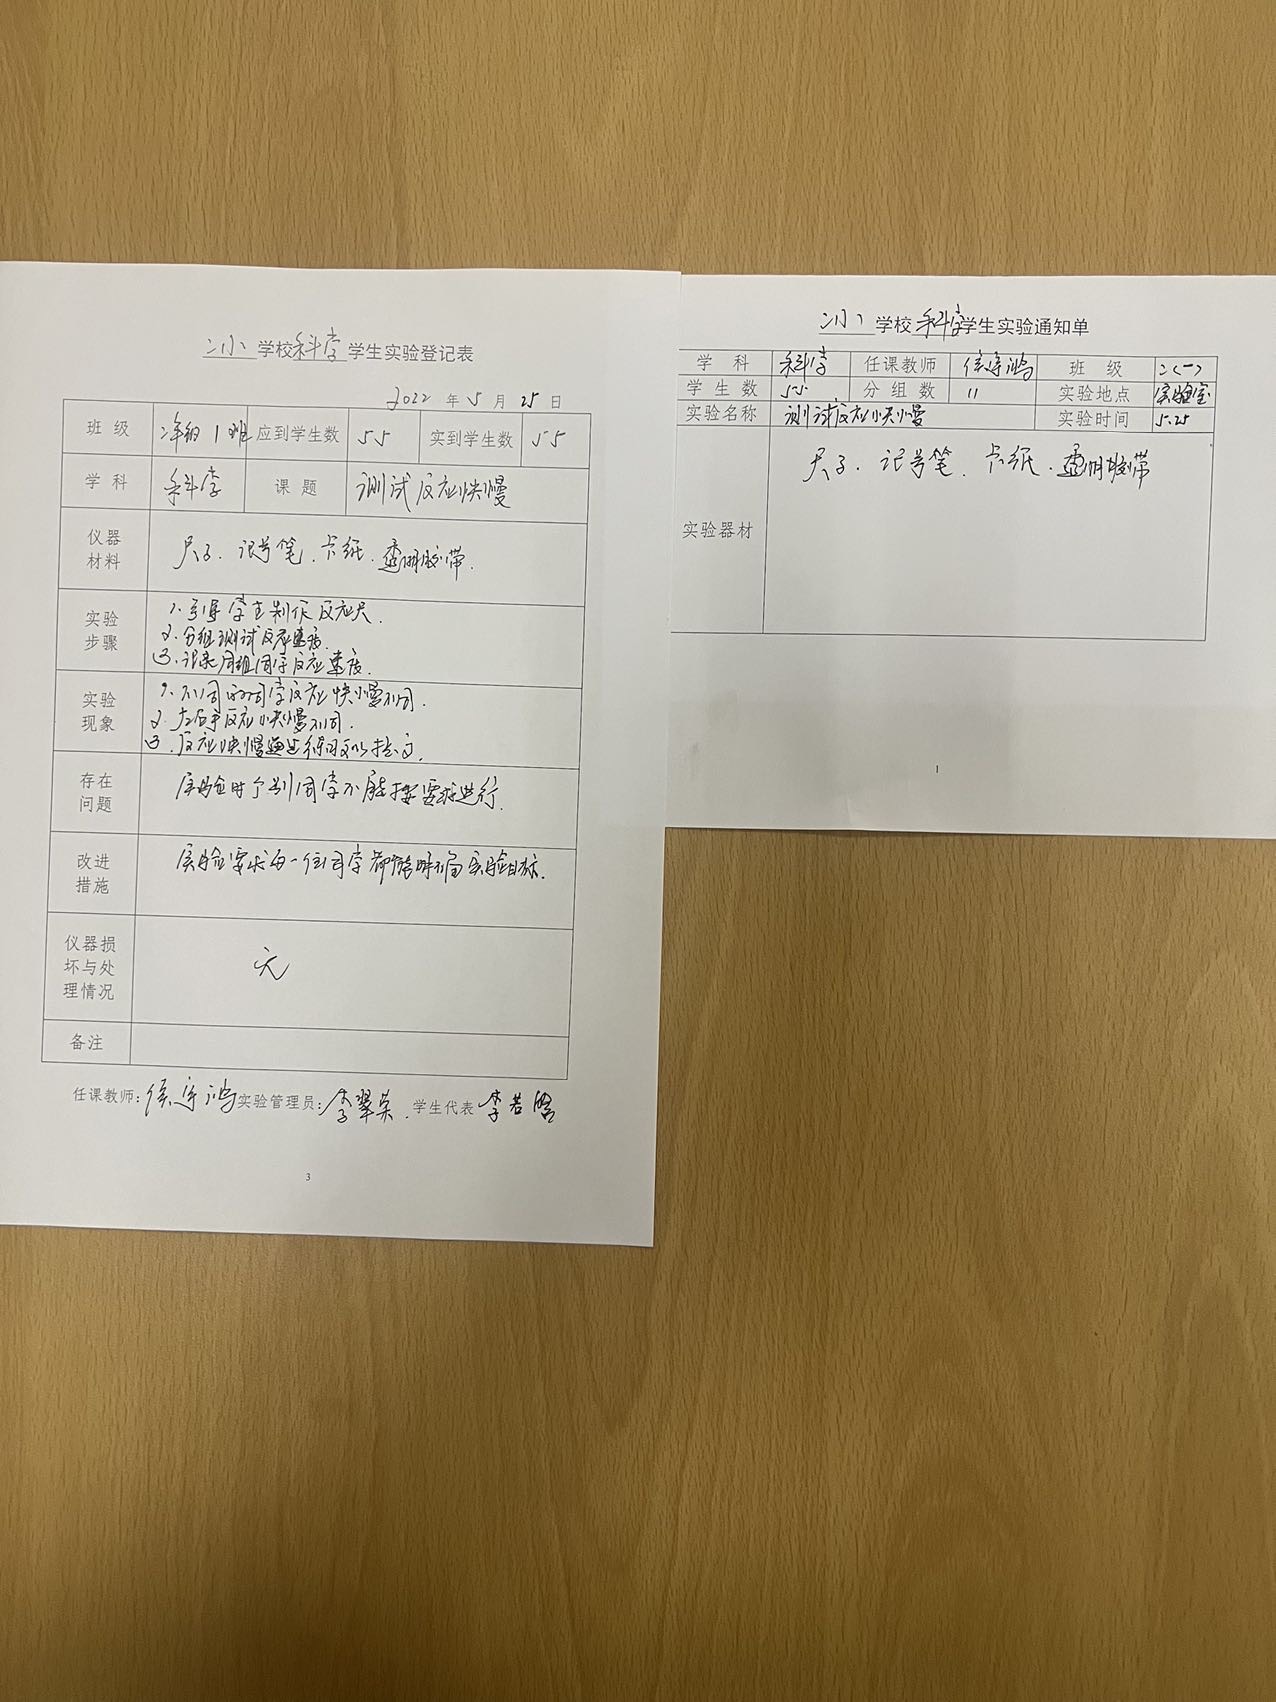 二小学校科学学生实验登记表
2022年5月25日
班级 二年级1班 应到学生数 55 实到学生数 55
学科 科学 课题 测试反应快慢
仪器材料 尺子、记号笔、卡纸、透明胶带.
实验步骤 1. 引导学生制作反应尺.
2. 分组测试反应速度.
3. 记录同组同学反应速度.
实验现象 1. 不同的同学反应快慢不同.
2. 左右手反应快慢不同.
3. 反应快慢通过练习可以提高.
存在问题 实验时个别同学不能按要求进行.
改进措施 实验要求每一位同学都能明确实验目标.
仪器损坏与处理情况 无
备注
任课教师: 实验管理员: 李翠荣. 学生代表 李若
3
二小学校科学学生实验通知单
学科 科学 任课教师 班级 二(一)
学生数 55 分组数 11 实验地点 实验室
实验名称 测试反应快慢 实验时间 5.25
实验器材 尺子、记号笔、卡纸、透明胶带
1